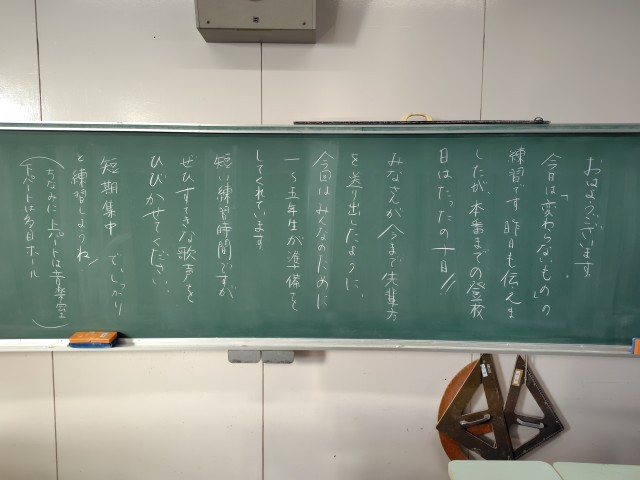 おはようございます
今日は「変わらないもの」の
練習です。昨日も伝えま
したが、本番までの登校
日はたったの十日!!
みなさんが今まで先輩方
を送り出したように、
今回はみんなのために
一〜五年生が準備を
してくれています
短い練習時間ですが
ぜひすてきな歌声を
ひびかせてください。
短期集中でしっかり
と練習しようね!
(ちなみに上パートは音楽室
下パートは多目ホール)